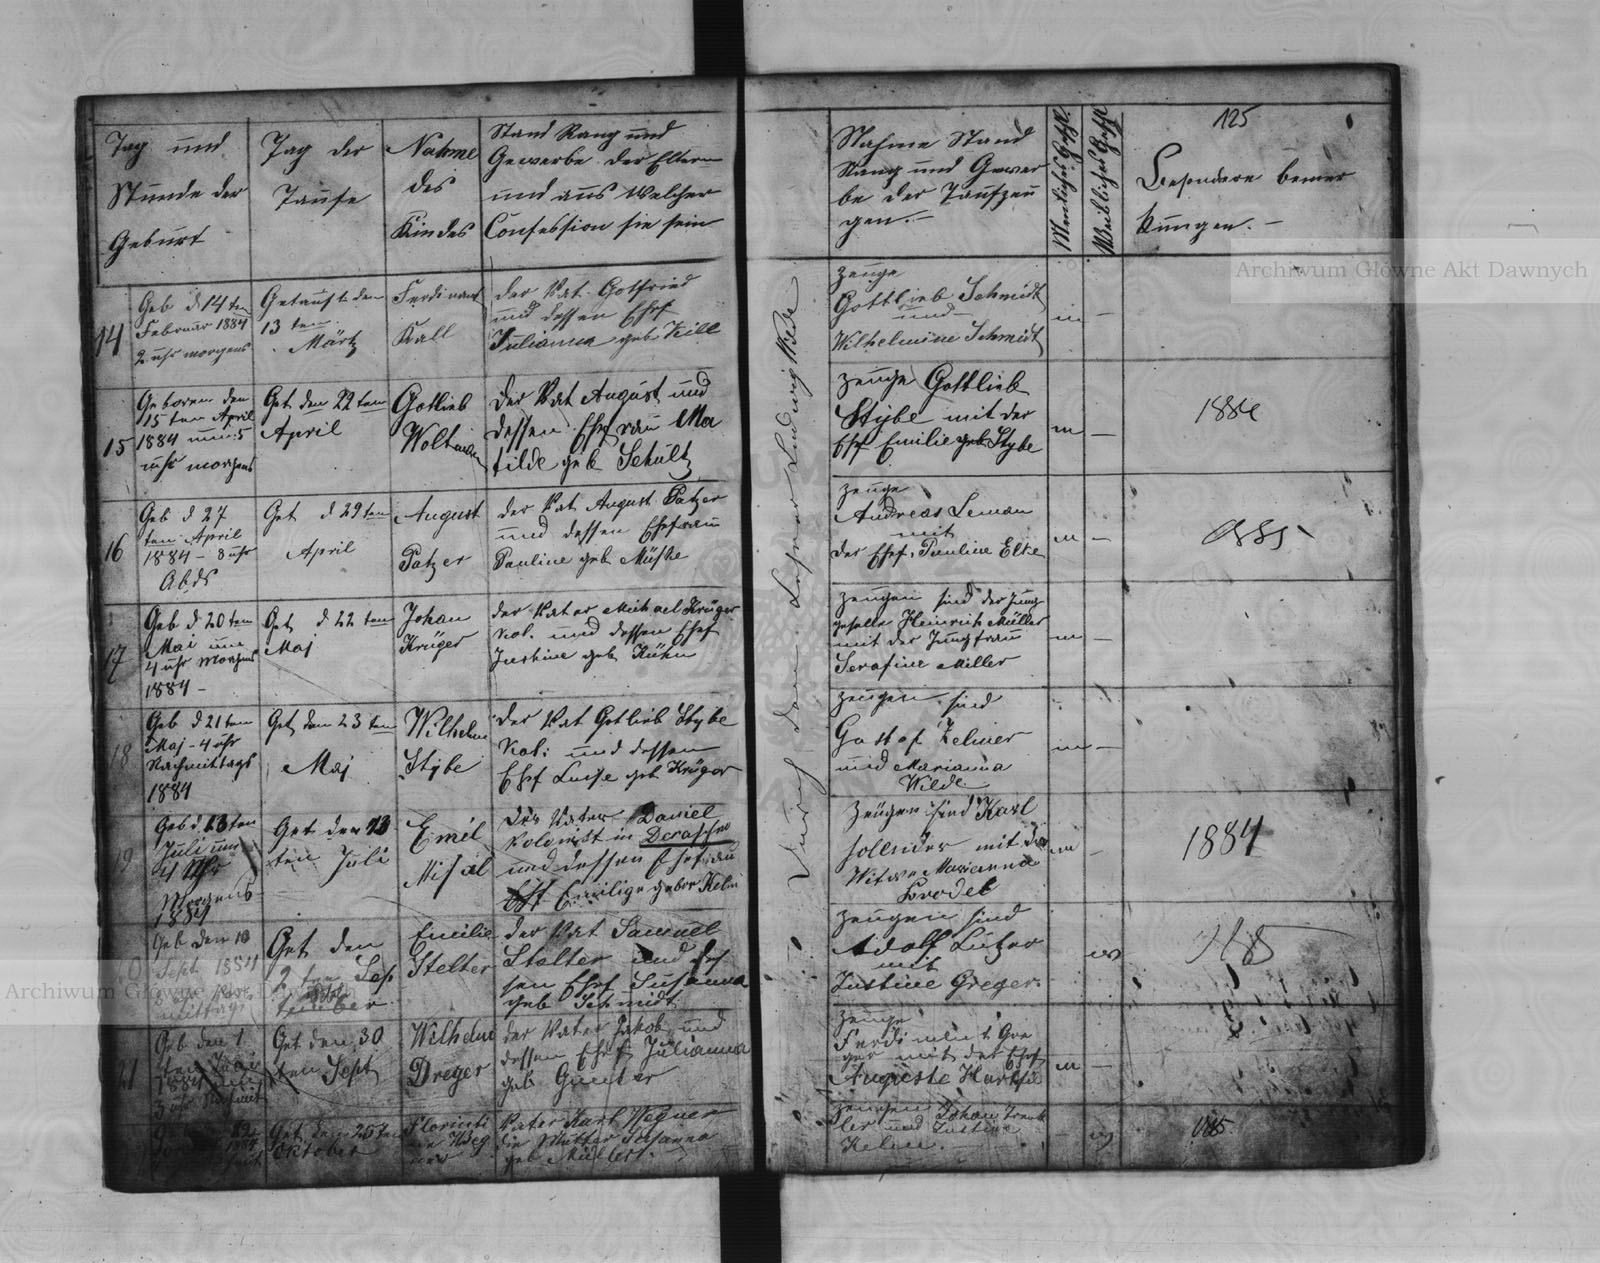 125
Tag und
Stunde der
Geburt
Tag der
Taufe
Nahme
des
Kindes
Stand Rang und
Gewerbe der Eltern
und aus welcher
Confession sie sein
Nahme Stand
Rang und Gewer
be der Taufzeu
gen.-
Menliches Geschl.
Weibliches Geschl
Besondere bemer
kungen.-
14
Geb d 14 ten
Februar 1884
2 uhr morgens
Getauft den
13 ten
Märtz
Ferdinant
Kall
der Vat. Gottfried
und dessen Ehef
Julianna geb Kill
zeuge
Gottlieb Schmidt
und
Wilhelmine Schmidt
m —
15
Geboren den
15 ten April
1884 um 5
uhr morgens
Get den 22 ten
April
Gotlieb
Woltman
der Vat August und
dessen Ehefrau Ma
tilde geb Schultz
zeuge Gottlieb
Stybe mit der
Ehf Emilie geb Stybe
m —
1884
16
Geb d 27
ten April
1884 - 8 uhr
Abds
Get d 29 ten
April
August
Patzer
der Vat August Patzer
und dessen Ehefrau
Pauline geb
zeuge
Andreas Leman
mit
der Ehef. Pauline Elke
m —
17
Geb d 20 ten
Mai um
4 uhr Morgens
1884 -
Get d 22 ten
Maj
Johan
Krüger
der Vater Michael Krüger
Kol. und dessen Ehef
Justine geb Kühn
zeugen sind der Jung
geselle Heinrich Müller
mit der Jungfrau
Serafine Miller
m —
18
Geb d 21 ten
Maj - 4 uhr
Nachmittags
1884
Get den 23 ten
Maj
Wilhelm
Stybe
der Vat Gotlieb Stybe
Kol: und dessen
Ehf Luise geb Krüger
zeugen sind
Gustof Zelmer
und Marianna
Wilde
m —
19
Geb d. 13 ten
Juli um
4 Uhr
Morgens
1884
Get den 23
ten Juli
Emil
Der Vater Daniel
Kolonist in
und dessen Ehefrau
Emilige gebor Kelm
Zeugen sind Karl
mit der
Witwe Marianna
m —
1884
Geb den 10
Sept 1884
mittags
Get den
Sep
tember
Emilie
Stelter
der Vat Samuel
Stelter und des
sen Ehef Susanna
geb Schmidt
zeugen sind
Adolf Lutzer
mit
Justine Greger
w
21
Geb den 1
1884
Get den 30
ten Sept
Wilhelm
Dreger
der Vater Jakob und
dessen Ehef Julianna
geb Gunter
zeuge
Ferdinant Gre
ger mit der Ehef
Auguste
m —
1884
Get den 25 ten
Oktober
Florenti
ne Weg
ner
Vater Karl Wegner
die Mutter Susanna
geb Müllert.
zeugen Johan
und Justine
Kelm.
w
Durch den Lehrer Ludwig Wilde
Archiwum Główne Akt Dawnych
Archiwum Główne Akt Dawnych